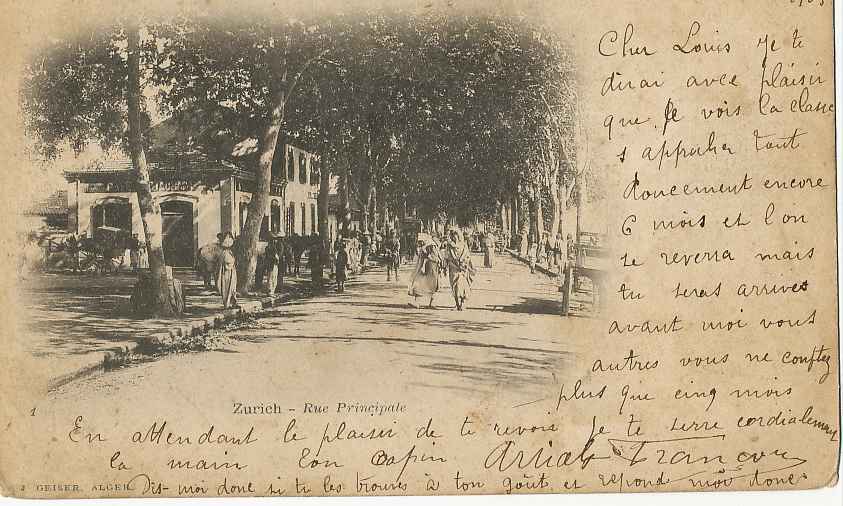 Cher Louis je te
dirai avec plaisir
que je vois la classe
s approcher tout
doucement encore
6 mois et l'on
se reverra mais
tu seras arrivés
avant moi vous
autres vous ne comptez
plus que cinq mois
Zurich - Rue Principale
1
En attendant le plaisir de te revoir je te serre cordialement
la main ton copin
GEISER, ALGER
Dis-moi donc si tu les trouves à ton goût et répond moi donc